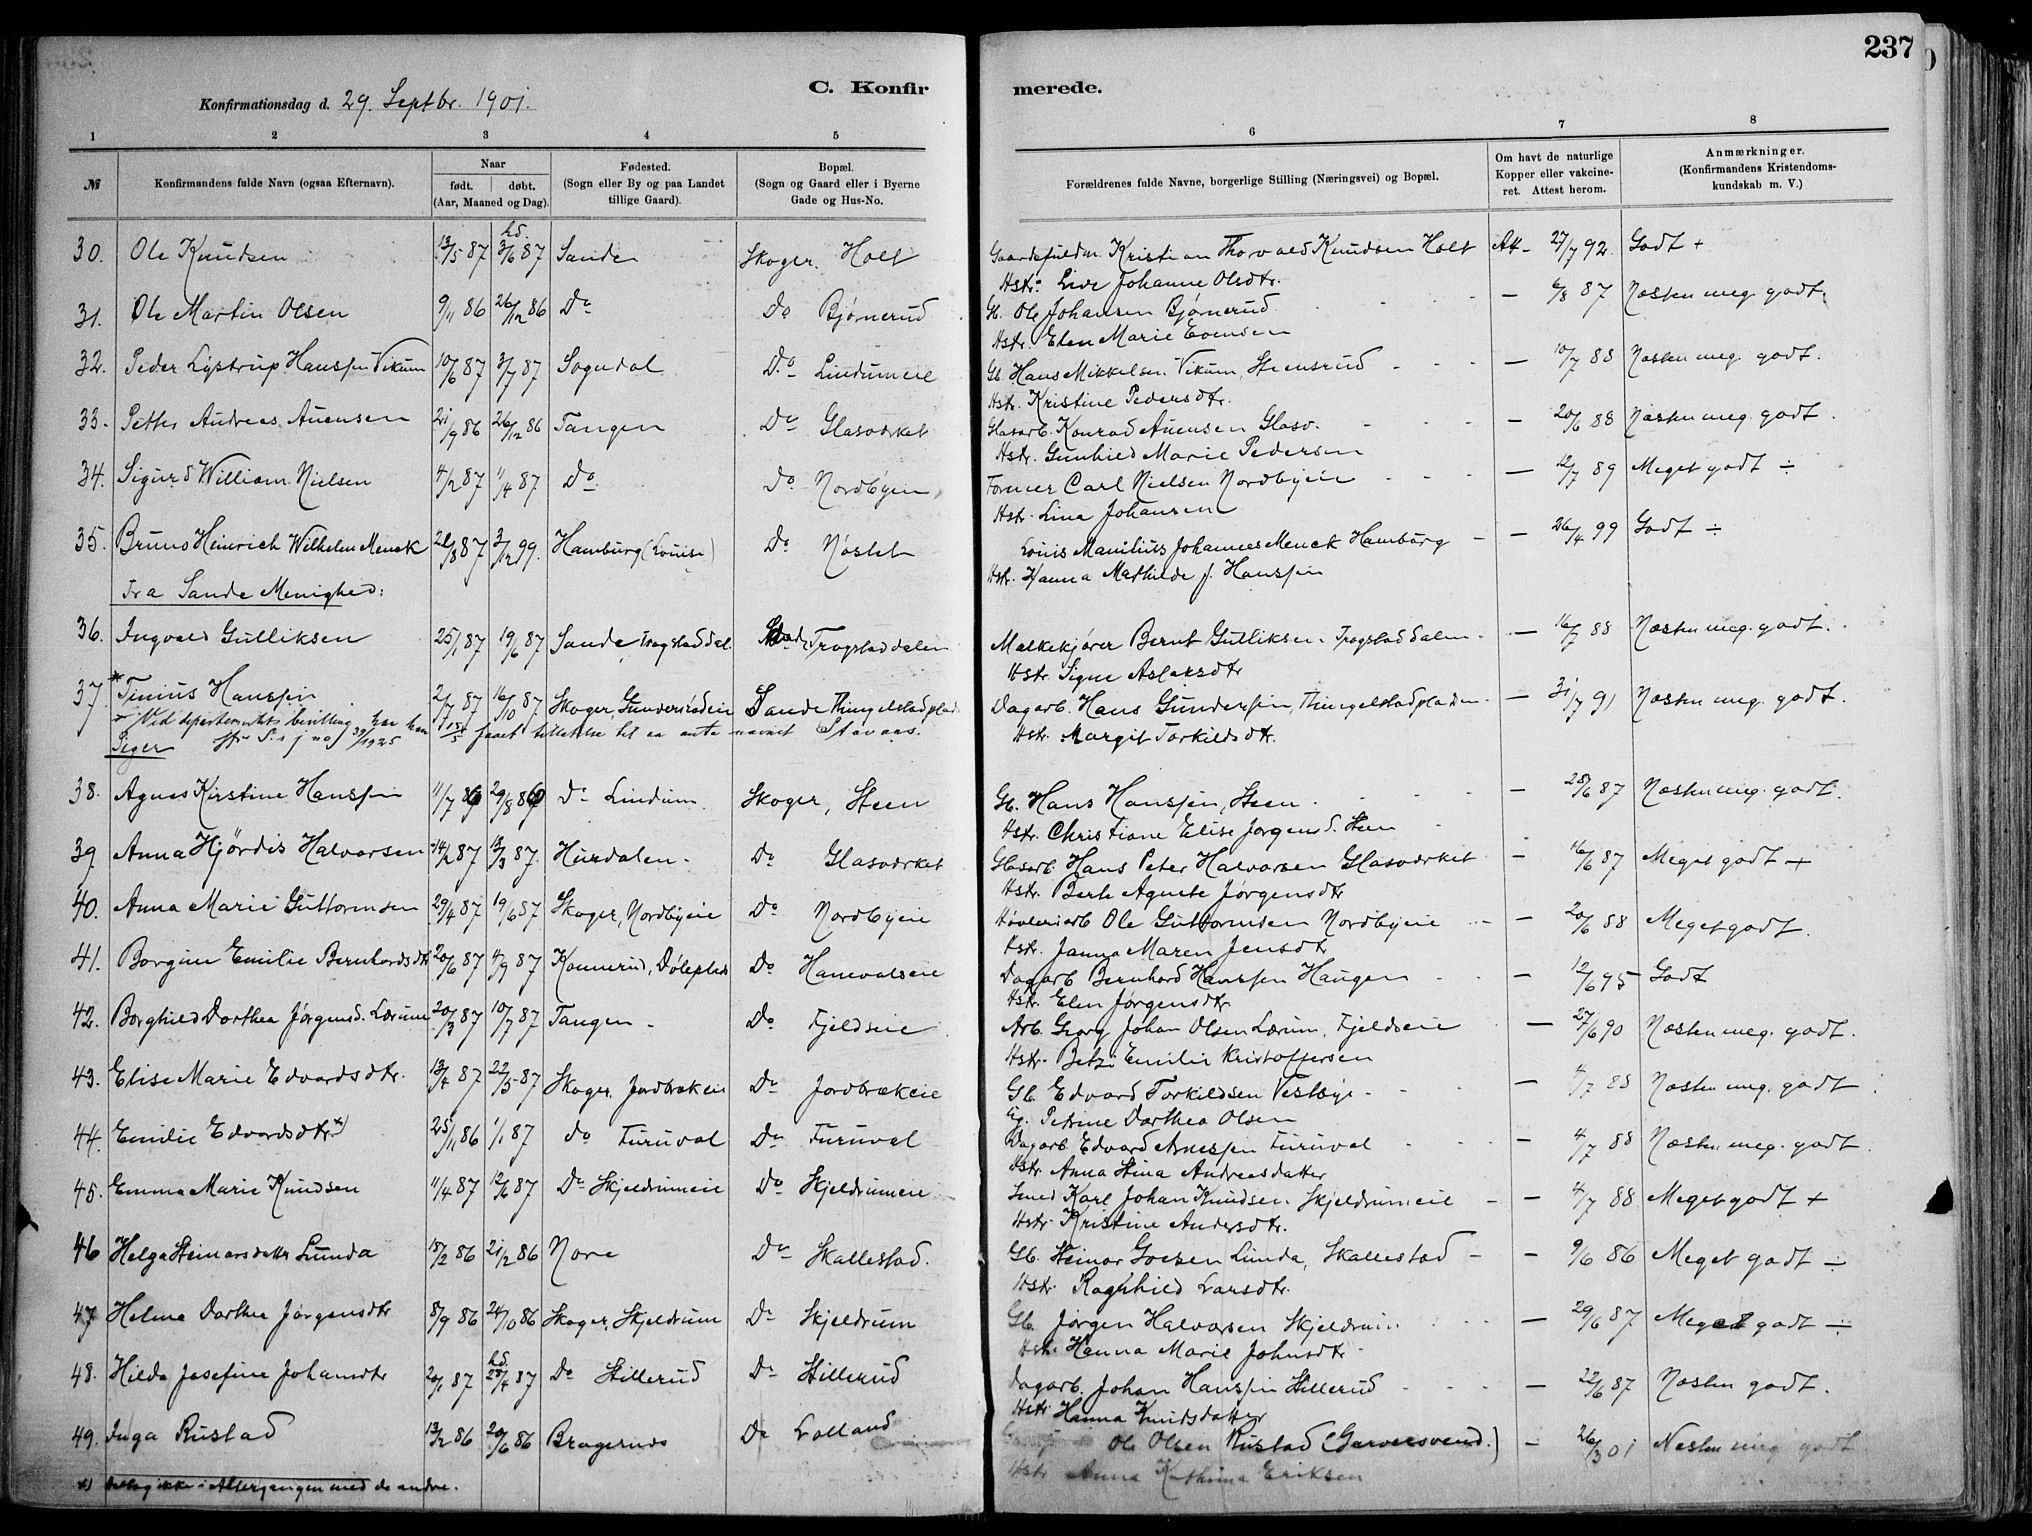 237
Konfirmationsdag d. 29. Septbr. 1901.
C. Konfir
merede.
1 2 3 4 5 6 7 8
№ Konfirmandens fulde Navn (ogsaa Efternavn). Naar født. døbt. (Aar, Maaned og Dag). Fødested. (Sogn eller By og paa Landet tillige Gaard). Bopæl. (Sogn og Gaard eller i Byerne Gade og Hus-No. Forældrenes fulde Navne, borgerlige Stilling (Næringsvei) og Bopæl. Om havt de naturlige Kopper eller vakcineret. Attest herom. Anmærkninger. (Konfirmandens Kristendomskundskab m. V.)
30. Ole Knudsen 13/5 87 hd. 3/6 87 Sande Skoger. Holt Gaardsfuldm. Kristian Thorvald Knudsen Holt Att- 27/7 92. Godt +
Hstr. Live Johanne Olsdtr.
31. Ole Martin Olsen 9/11 86 26/12 86 Do Do Bjørnerud G. Ole Johansen Bjørnerud - 6/8 87 Næsten meg. godt.
Hstr. Elen Marie Evensen
32. Peder Lystrup Hanssen Vikum 10/6 87 3/7 87 Sogndal Do Lindumeie Gb. Hans Mikkelsen Vikum, Steensrud - 10/7 88 Næsten meg. godt.
Hstr. Kristine Pedersdtr.
33. Petter Andreas Auensen 21/9 86 26/12 86 Tangen Do Glasværket Glasarb. Konrad Auensen Glasv. - 20/6 88 Næsten meg. godt.
Hstr. Gunhild Marie Pedersen
34. Sigurd William Nielsen 4/2 87 1/4 87 Do Do Nordbyeie Former Carl Nielsen Nordbyeie - 12/7 89 Meget godt ÷
Hstr. Lina Johansen
35. Bruno Heinrich Wilhelm Menck 21/3 87 3/12 99. Hamburg (Louise) Do Nøstet Louis Manilius Johannes Menck Hamburg - 26/4 99 Godt ÷
Hstr. Hanna Mathilde f. Hanssen
Fra Sande Menighed:
36. Ingvald Gulliksen 25/1 87 19/6 87 Sande, Trogstaddal. Trogstaddalen Melkekjører Bernt Gulliksen Trogstaddalen - 16/7 88 Næsten meg. godt.
Hstr. Signe Aslaksdtr
37. * Tinius Hanssen 2/7 87 16/10 87 Skoger, Gunderrødeie Sande Thingelstadplads Dagarb. Hans Gundersen, Thingelstadpladsen - 31/7 91 Næsten meg. godt.
* Ved departementets bevilling har han 15/5 faaet tilladelse til aa anta navnet Stavaas. Hstr. Margit Torkildsdtr.
Siger
38. Agnes Kirstine Hanssen 11/7 86 29/8 86 Do Lindum Skoger, Steen Gb. Hans Hanssen, Steen - 28/6 87 Næsten meg. godt.
Hstr. Christiane Elise Jørgensd. Steen
39 Anna Hjørdis Halvorsen 14/2 87 13/3 87. Hurdalen - Do Glasværket Glasarb. Hans Peter Halvorsen Glasværket - 16/6 87 Meget godt +
Hstr. Berte Agnete Jørgensdtr
40. Anna Marie Guttormsen 29/4 87 19/6 87 Skoger, Nordbyeie Do Nordbyeie Høvleriarb Ole Guttormsen Nordbyeie - 20/6 88 Meget godt.
Hstr. Janna Maren Jensdtr
41. Borgine Emilie Bernhardsdtr 20/6 87 4/9 87 Konnerud, Døleplads Do Hanevalseie Dagarb Bernhard Hanssen Haugen - 12/6 95 Godt
Hstr. Elen Jørgensdtr.
42. Borghild Dorthea Jørgensd. Lærum 20/3 87 10/7 87 Tangen - Do Fjeldseie Arb. Georg Johan Olsen Lærum, Fjeldseie - 27/6 90 Næsten meg. godt.
Hstr. Betzi Emilie Kristoffersen
43. Elise Marie Edvardsdtr. 13/4 87 22/5 87 Skoger, Jordbrækeie Do Jordbrækeie Gb. Edvard Torkildsen Vestbye - 4/7 88 Næsten meg. godt
Eg. Petrine Dorthea Olsen
44. Emilie Edvardsdtr.*) 25/11 86 1/1 87 do Furuval Do Furuval Dagarb Edvard Arnessen Furuval - 4/7 88 Næsten meg. godt
Hstr. Anna Stina Andreasdatter
45. Emma Marie Knudsen 11/4 87 12/6 87 Do Skjeldrumeie Do Skjeldrumeie Smed Karl Johan Knudsen Skjeldrumeie - 4/7 88 Meget godt +
Hstr. Kristine Andersdtr.
46 Helga Steinarsdatter Lunda 15/2 86 21/2 86 Nore Do Skallestad. Gb. Steinar Goesen Lunda, Skallestad - 9/6 86 Meget godt ÷
Hstr. Ragnhild Larsdtr.
47 Helma Dorthea Jørgensdtr 8/9 86 24/10 86 Skoger, Skjeldrum Do Skjeldrum Gb. Jørgen Halvorsen Skjeldrum - 29/6 87 Meget godt ÷
Hstr. Hanna Marie Johnsdtr -
48. Hilda Josefine Johansdtr 20/1 87 hd. 28/4 87 Do Stillerud Do Stillerud Dagarb. Johan Hanssen Stillerud - 22/6 87 Næsten godt.
Hstr Hanna Knudsdatter
49. Inga Rustad 13/2 86 20/6 86 Bragernes Do Lolland Ole Olsen Rustad (Garversvend.) - 26/3 01 Næsten meg godt
Hstr Anna Kathrina Eriksen
*) deltog ikke i Altergangen med de andre.